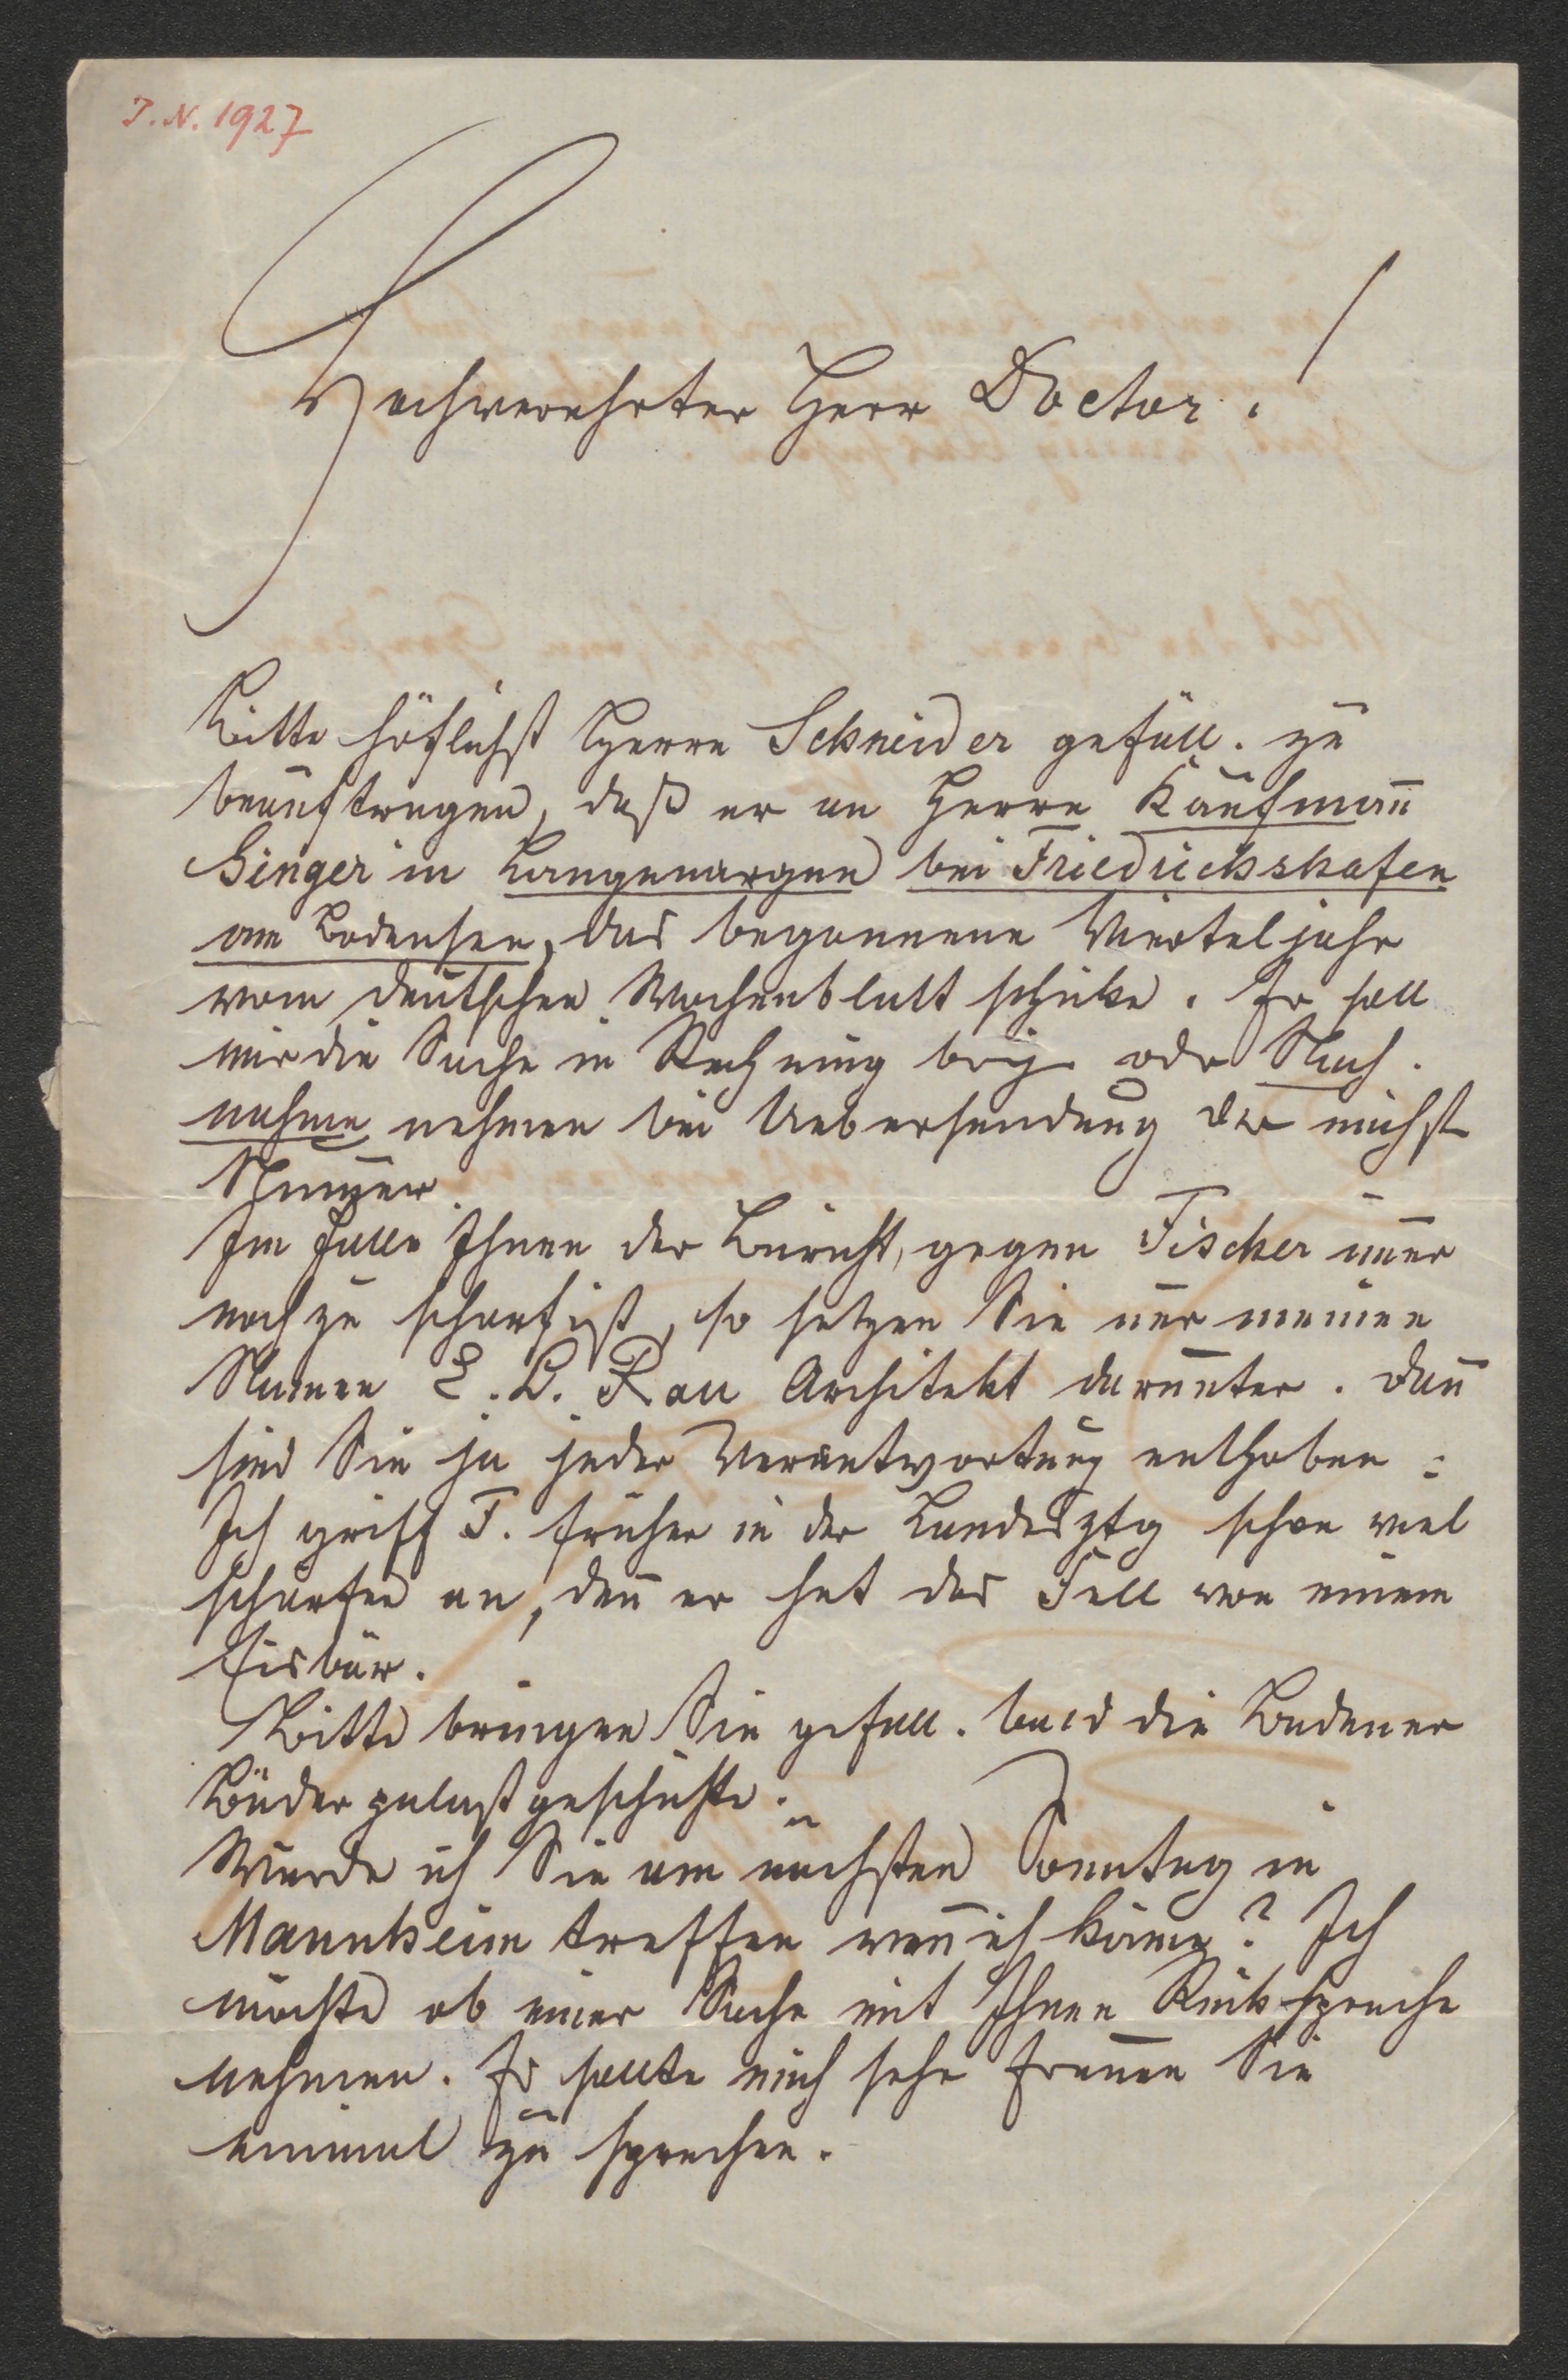 I. N. 1927
Hochverehrter Herr Doctor!
Bitte höflichst Herrn Schneider gefäll. zu
beauftragen, daß er an Herrn Kaufmañ
Ginger in Langenargen bei Friedrichshafen
am Bodensee, das begonnene Vierteljahr
vom deutschen Wochenblatt schicke. Er soll
mir die Sache in Rechnung oder Nach-
nahme nehmen bei Uebersendung der nächst
Num̄er.
Im Falle Ihnen der Bericht, gegen Fischer im̄er
noch zu scharf ist, so setzen Sie nur meinen
Namen E. B. Rau Architekt darunter. Dañ
sind Sie ja jeder Verantwortung enthoben.
Ich griff F. früher in der Landesztg schon viel
schärfer an, deñ er hat das Fell von einem
Eisbär.
Bitte bringen Sie gefäll. bald die Badener
Bäderpalastgeschichte.
Würde ich Sie am nächsten Sonntag in
Mannheim treffen weñ ich käme? Ich
möchte ob einer Sache mit Ihnen Rücksprache
nehmen. Es sollte mich sehr freuen Sie
einmal zu sprechen.